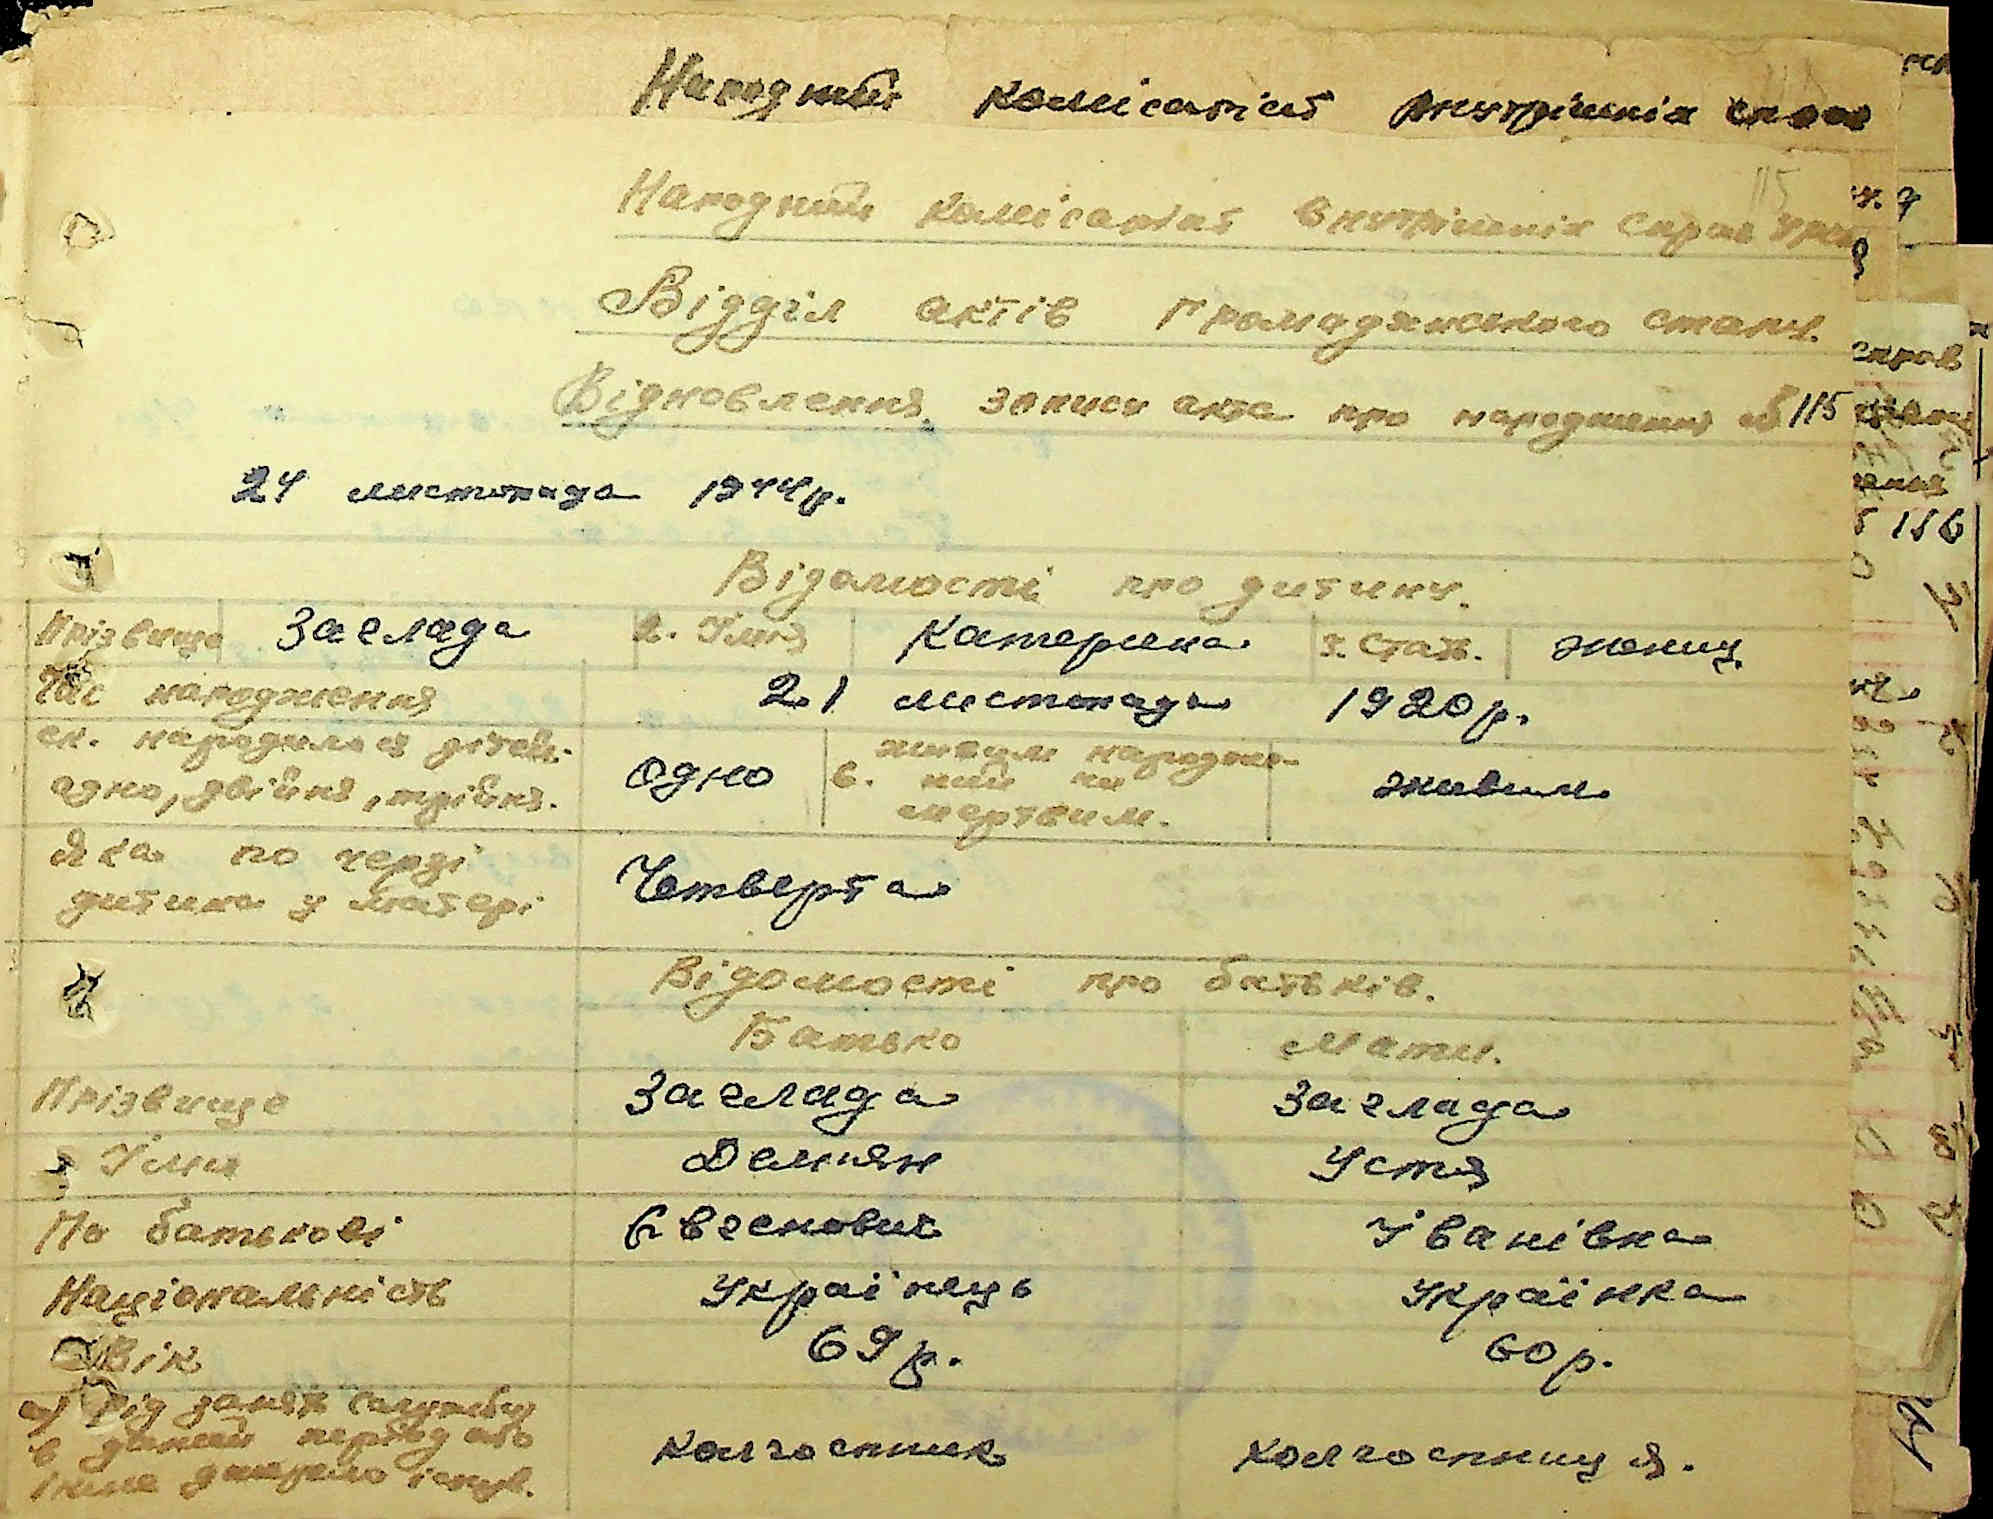 Народний комісаріат внутрішніх справ
115
Народний комісаріат внутрішніх справ УРСР
Відділ актів громадянського стану.
Відновлення запису акта про народження № 115
24 листопада 1944 р.
Відомості про дитину.
Прізвище Заглада 2. Імя Катерина 3. Стать. жіноч.
Час народження 21 листопада 1920 р.
ск. народилося дітей:
одно, двійня, трійня. одно 6. живим народже-
ний чи
мертвим. живим
Яка по черзі
дитина у матері Четверта
Відомості про батьків.
Батько Мати.
Прізвище Заглада Заглада
Імя Демян Устя
По батькові Євгенович Іванівна
Національність Українець Українка
Вік 69 р. 60 р.
а) рід занять службу
в даний період або
інше джерело існув. колгоспник колгоспниця.
справ
116